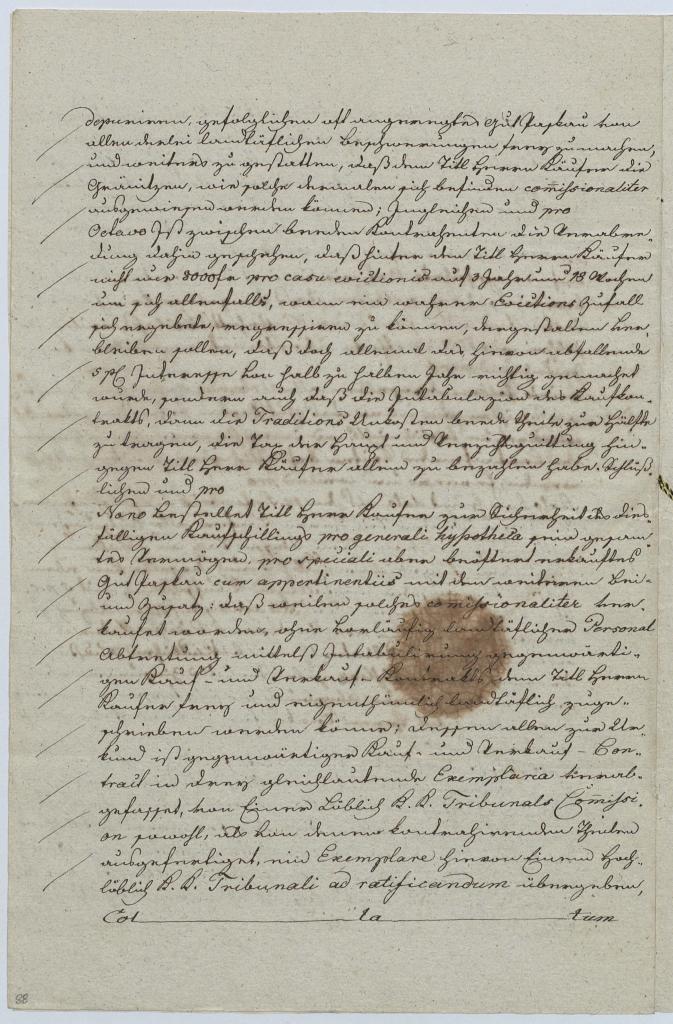 depuriren, gefolglichen oft angeregtes Gut Paskau von
allen derlei landtäflichen Beschwerungen frey zu machen,
und weiters zu gestatten, daß dem Titl Herrn Käufer die
Gränitzen, wie solche dermalen sich befinden comissionaliter
ausgewiesen werden können; Ingleichen und pro
Octavo Ist zwischen beeden Kontrahenten die Verabre-
dung dahin geschehen, daß hinter dem Titl Herrn Käufer
nicht nur 3000 fr pro casu evictionis auf 3 Jahr und 18 Wochen
um sich allenfalls, wann ein wahrer Evictions Zufall
sich ergebete, regressiren zu können, dergestalten ver-
bleiben sollen, daß doch allemal das hievon abfallende
5 pC Interesse von halb zu halben Jahr richtig gemachet
wurde, sondern auch daß die Intabulazion des Kaufkon-
trakts, dann die Traditions Unkosten beede Theile zur Hälfte
zu tragen, die Tax der Haupt und Verzichtsquittung hin-
gegen Titl Herr Käufer allein zu bezahlen habe. Schlüß-
lichen und pro
Nono Bestellet Titl Herr Kaufer zur Sicherheit des dies-
fälligen Kaufschillings pro generali hypotheca sein gesam-
tes Vermögen, pro speciali aber beöftert erkauftes
Gut Paskau cum appertinentiis mit dem weiteren Bei-
und Zusatz: daß weilen solches comissionaliter ver-
kaufet worden, ohne vorläufig landtäflicher Personal
Abtrettung mittelst Intabulirung gegenwärti-
gen Kauf- und Verkauf- Kontrakts dem Titl Herrn
Kaufer frey und eigenthümlich landtäflich zuge-
schrieben werden könne; dessen allen zur Ur-
kund ist gegenwärtiger Kauf- und Verkauf- Con-
tract in drey gleichlautende Exemplaria verab-
gefasset, von Einer Löblich K. K. Tribunals Comissi-
on sowohl, als von denen kontrahirenden Theilen
ausgefertiget, ein Exemplare hievon Einem Hoch-
löblich K. K. Tribunali ad ratificandum übergeben,
Col la tum
88